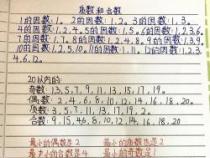 质数和合数
1的因数:1。2的因数:1,2。3的因数:1,3。
4的因数:1,2,4。5的因数:1,5。6的因数:1,2,3,6。
7的因数:1,7。8的因数:1,2,4,8。9的因数:1,3,9。
10的因数:1,2,5,10。11的因数:1,11。12的因数:1,2,3,
4,6,12。
20以内的:
奇数:1,3,5,7,9,11,13,15,17,19。
偶数:2,4,6,8,10,12,14,16,18,20。
质数:3,5,7,11,13,17,19,2。
合数:9,15,4,6,8,10,12,14,16,18,20
最小的偶数是2 最小的质数是2
最小的合数是4 最小的奇数是1